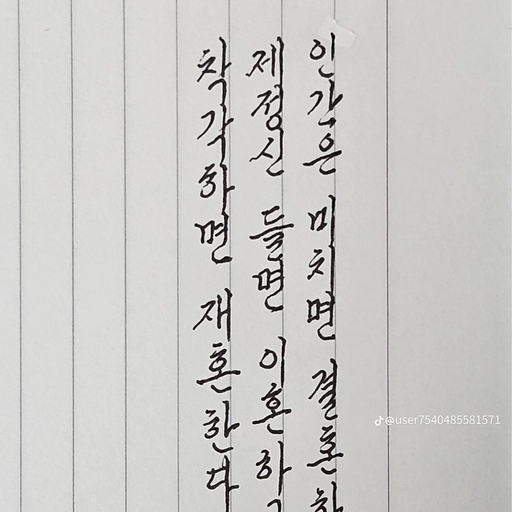 인간은 미치면 결혼하
제정신 들면 이혼하
착각하면 재혼한다
@user7540485581571